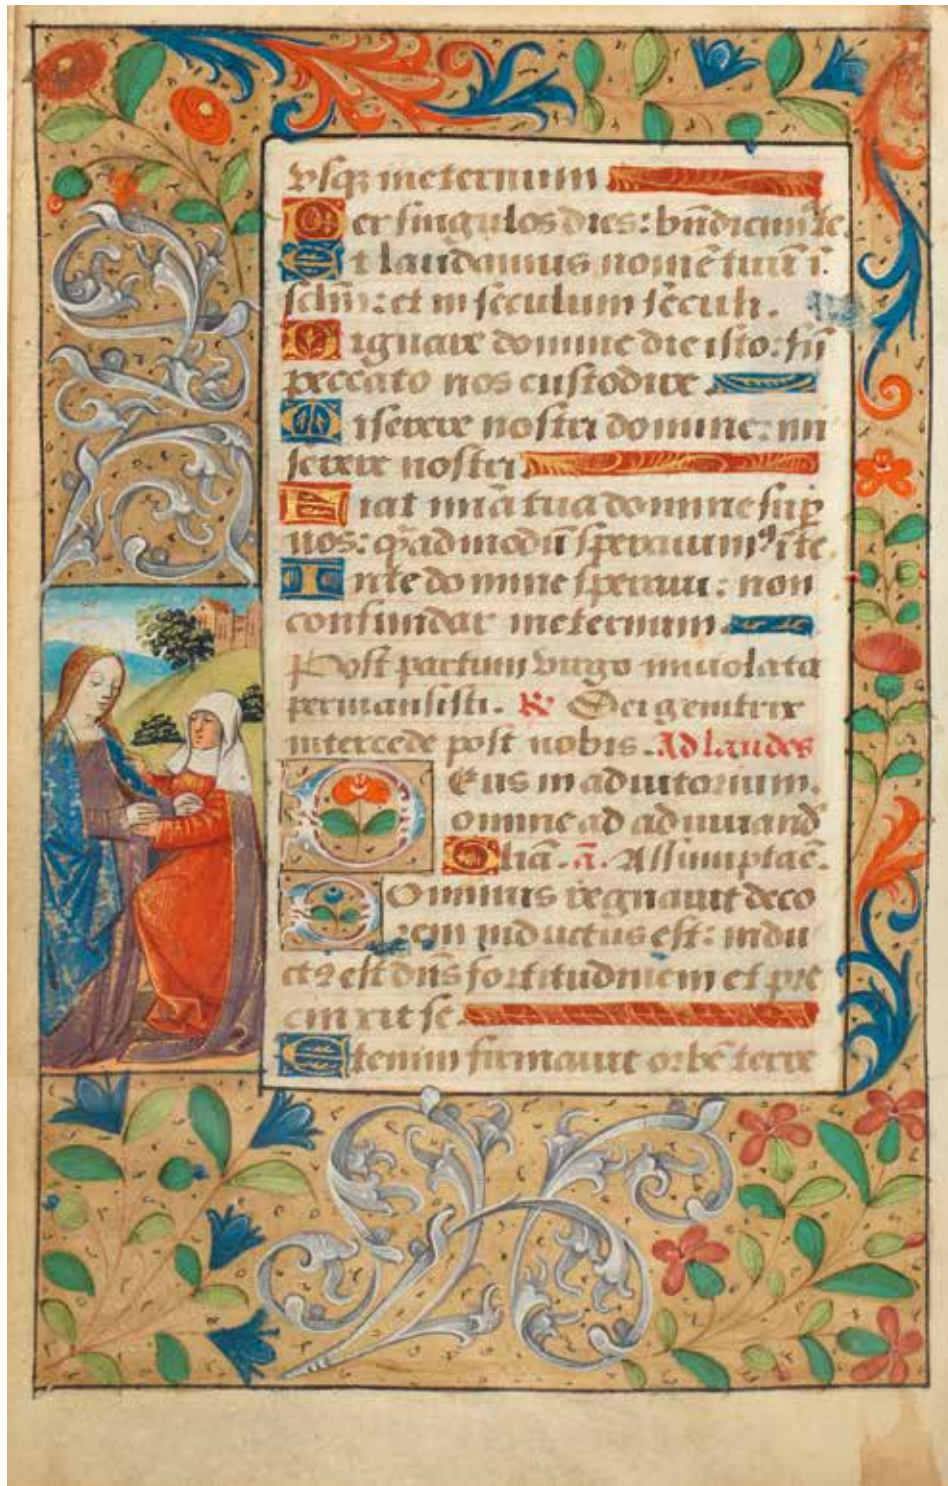 vsq; in eternum
Per singulos dies: bn̄dicim⁹ te.
Et laudamus nomē tuū ī
sclm̄: et in seculum seculi.
Dignare domine die isto: sn̄
peccato nos custodire
Miserere nostri domine: mi
serere nostri
Fiat mīa tua domine sup̱
nos: q̄̄admodū speravim⁹ ī te.
In te domine speravi: non
confundar in eternum.
Post partum virgo inviolata
permansisti. ℟ Dei genitrix
intercede post nobis. Ad laudes
Deus in adiutorium.
Domine ad adiuvand̄
Glīa. ā. Assumpta ē.
Dominus regnavit deco
rem indutus est: indu
ct⁹ est dn̄s fortitudinem et pre
cinxit se.
Etenim firmavit orbē terre